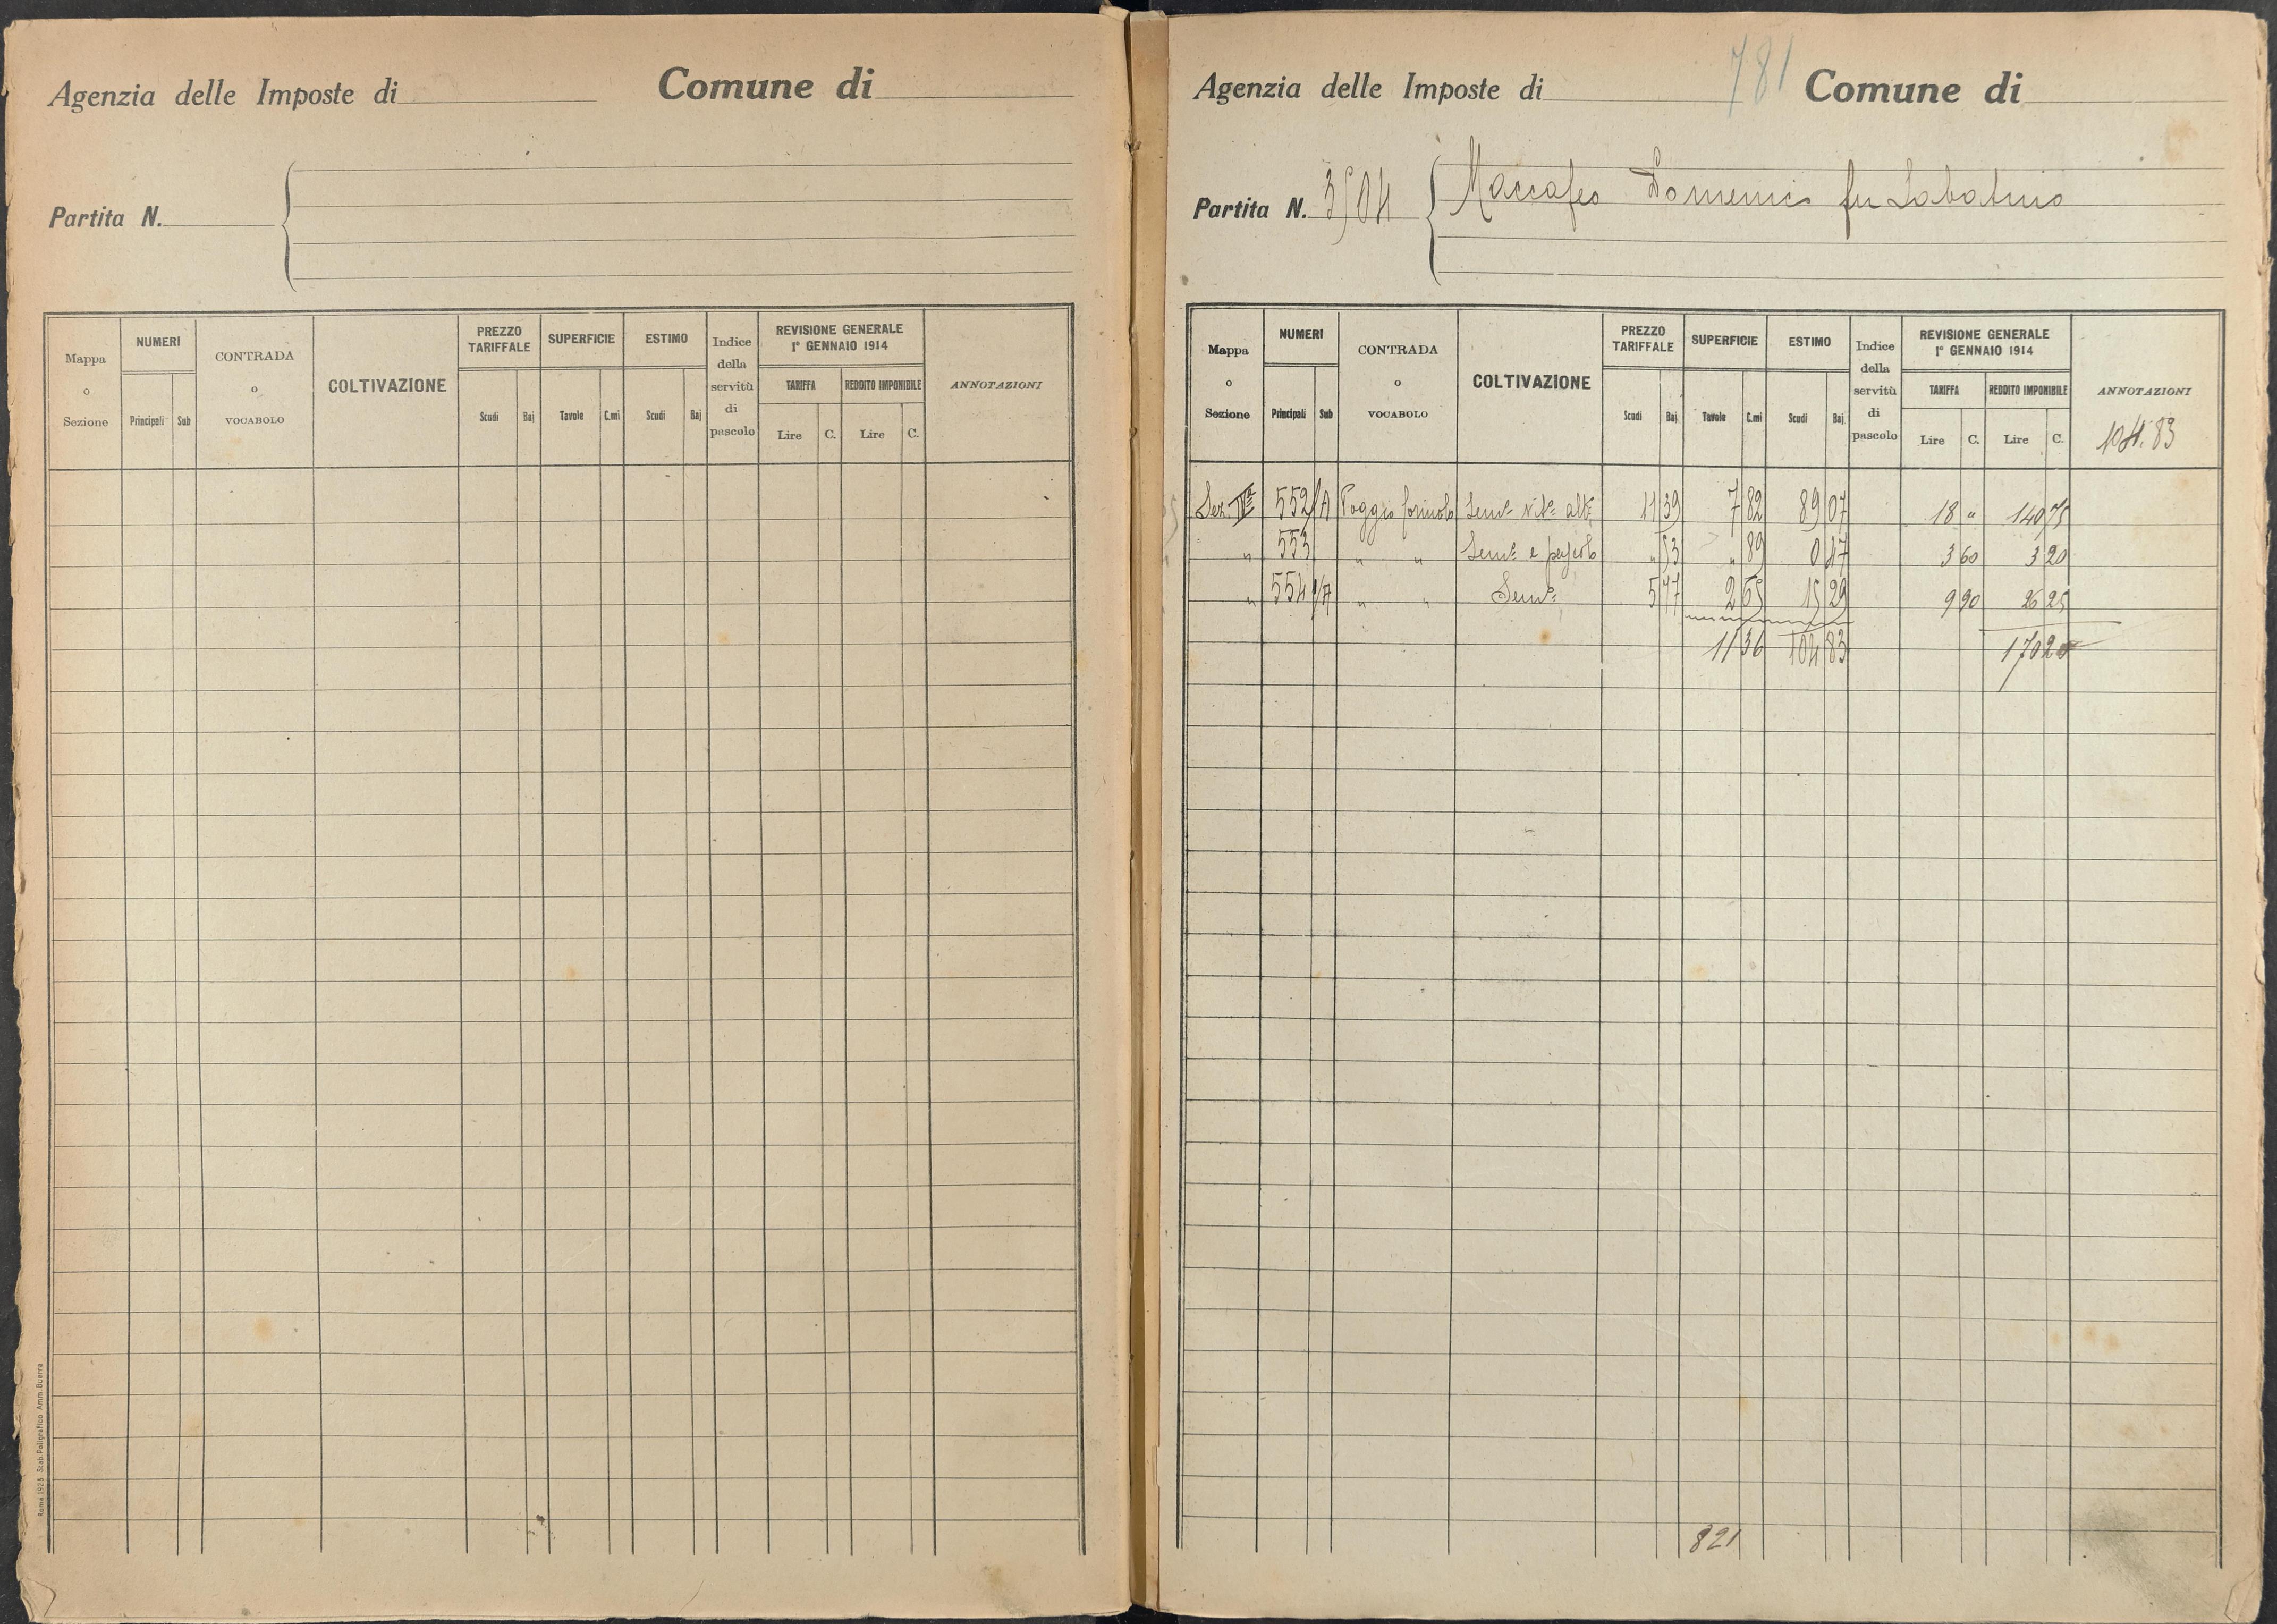 Agenzia delle Imposte di Comune di
Partita N.
Mappa o Sezione NUMERI Principali Sub CONTRADA o VOCABOLO COLTIVAZIONE PREZZO TARIFFALE Scudi Baj SUPERFICIE Tavole C.mi ESTIMO Scudi Baj Indice della servitù di pascolo REVISIONE GENERALE 1° GENNAIO 1914 TARIFFA Lire C. REDDITO IMPONIBILE Lire C. ANNOTAZIONI
Roma 1923 Stab. Poligrafico Amm. Guerra
781
Agenzia delle Imposte di Comune di
Partita N. 3504 Maccafeo Domenico fu Sabatino
Mappa o Sezione NUMERI Principali Sub CONTRADA o VOCABOLO COLTIVAZIONE PREZZO TARIFFALE Scudi Baj SUPERFICIE Tavole C.mi ESTIMO Scudi Baj Indice della servitù di pascolo REVISIONE GENERALE 1° GENNAIO 1914 TARIFFA Lire C. REDDITO IMPONIBILE Lire C. ANNOTAZIONI
104.83
Sez. IVa 552 1/A Poggio Semo Vito albo 11 39 7 82 89 07 18 " 140 75
" 553 " " Semo e pascolo " 53 " 89 0 47 3 60 3 20
" 554 1/A " " Semo 5 77 2 65 15 29 9 90 26 25
11 36 104 83 170 20
821